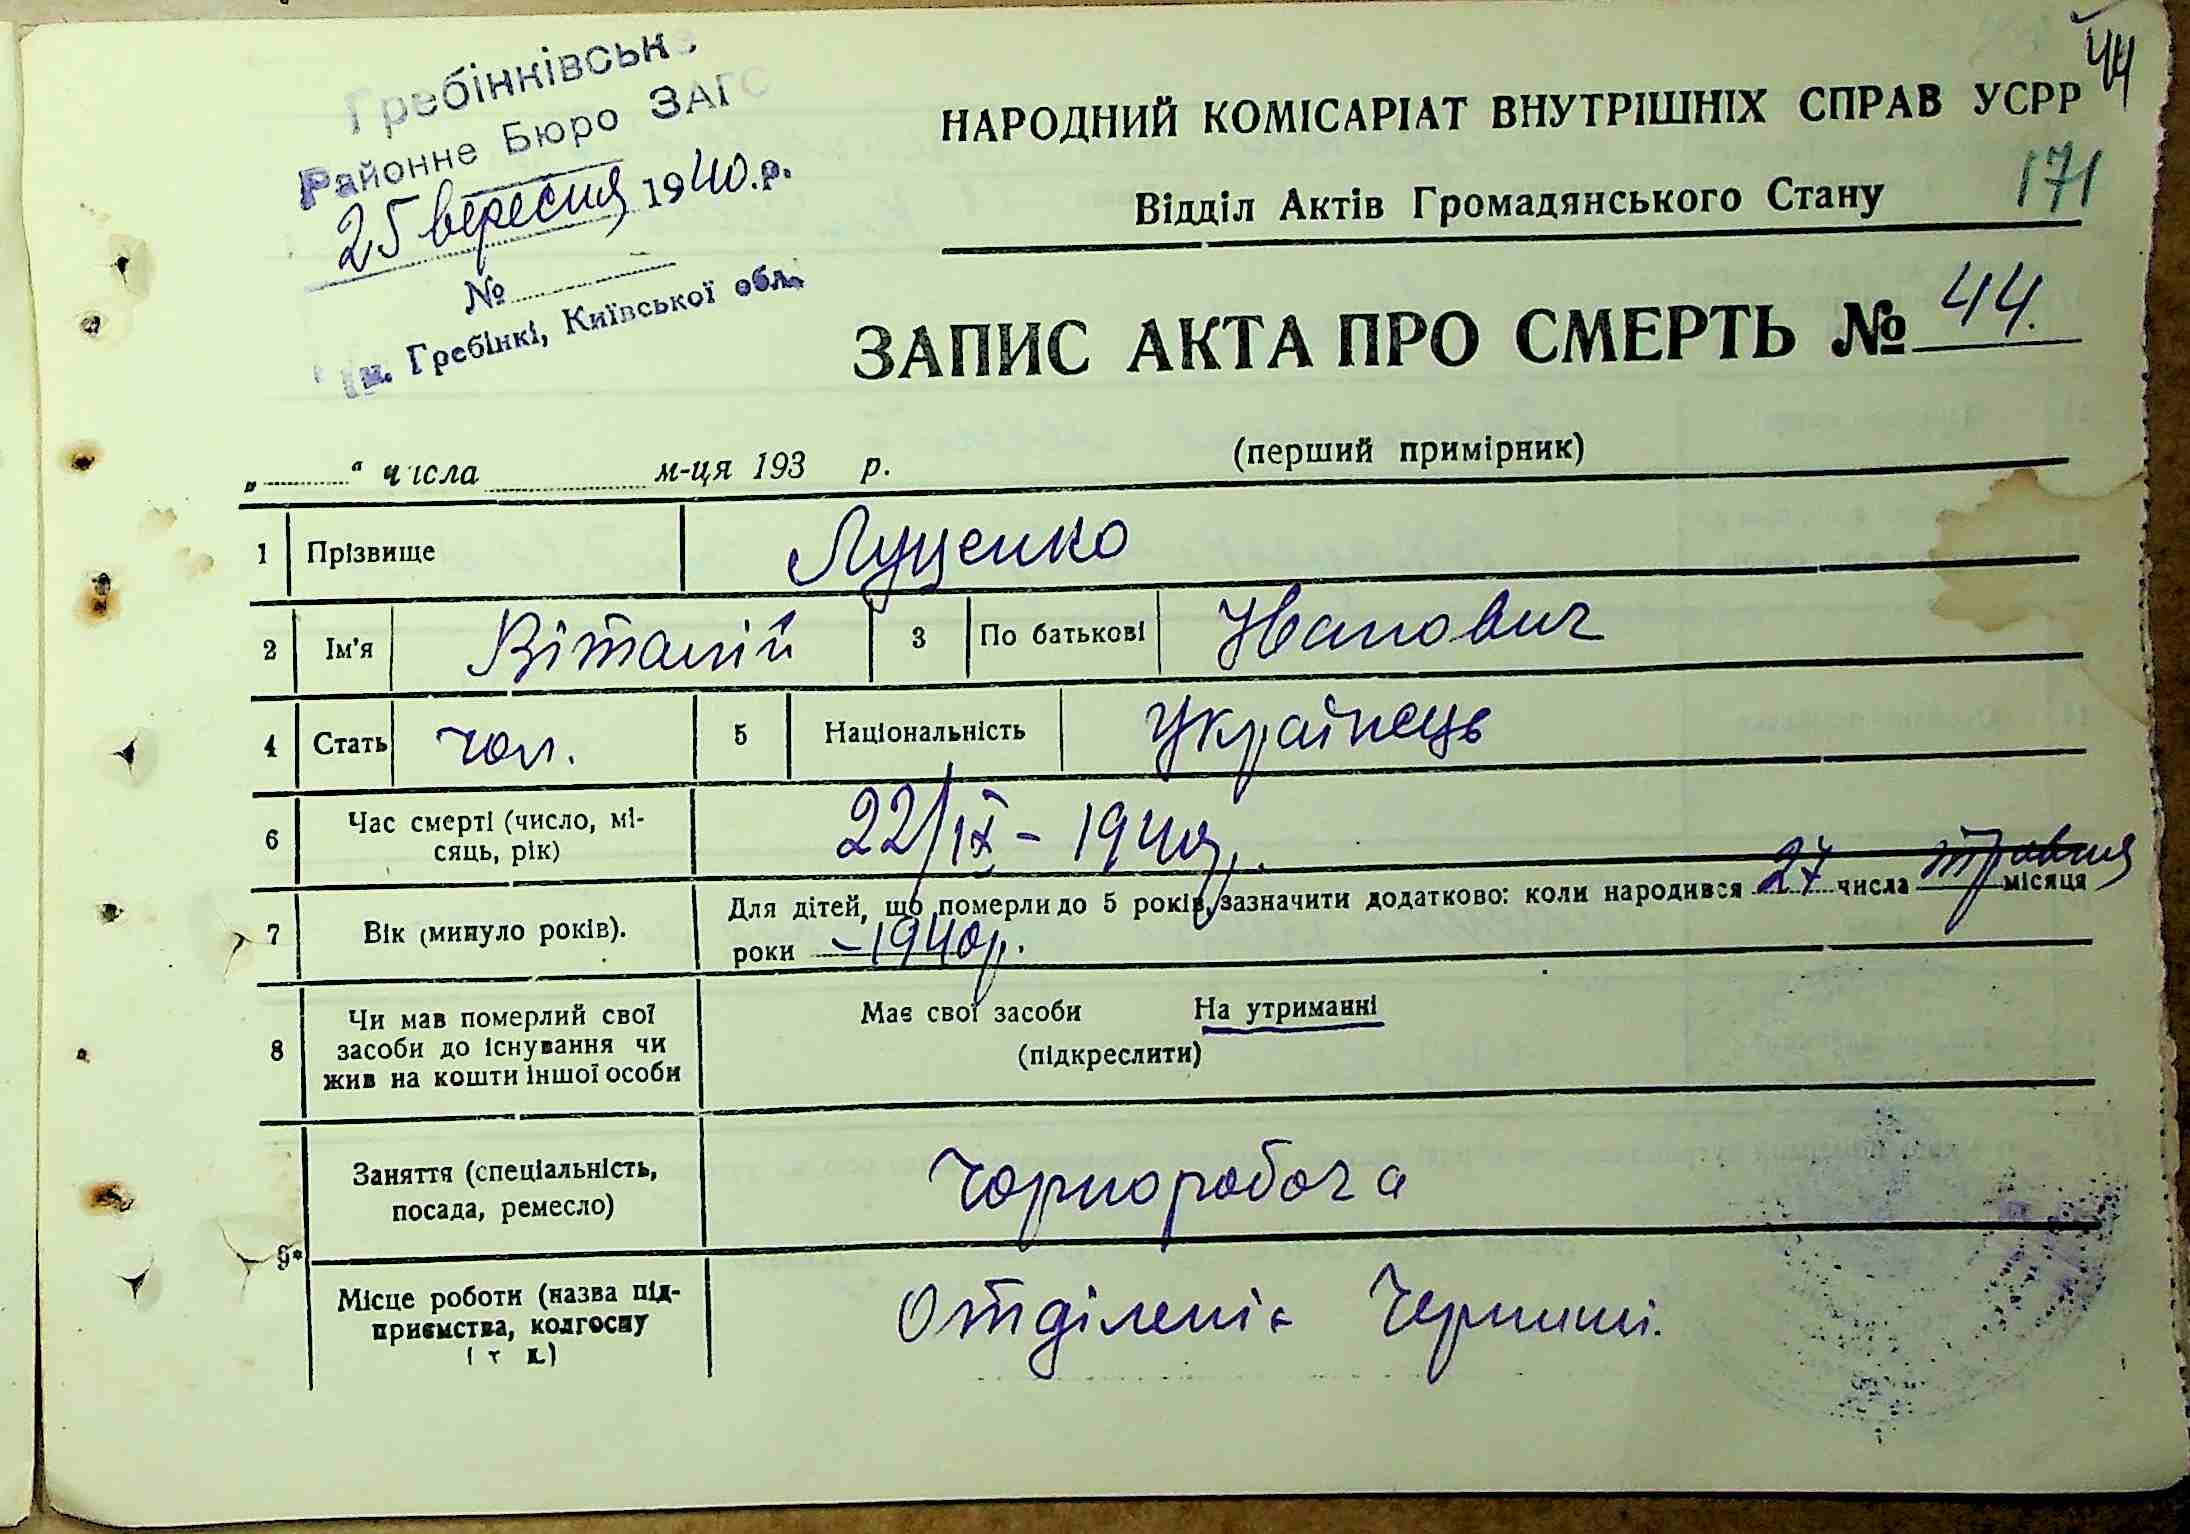 44
Гребінківськ
Районне Бюро ЗАГС
25 вересня 1940.р.
№
Гребінкі, Київської обл.
НАРОДНИЙ КОМІСАРІАТ ВНУТРІШНІХ СПРАВ УСРР
171
Відділ Актів Громадянського Стану
ЗАПИС АКТА ПРО СМЕРТЬ № 44.
„ “ числа м-ця 193 р.
(перший примірник)
1 Прізвище Луценко
2 Ім'я Віталій 3 По батькові Іванович
4 Стать чол. 5 Національність Українець
6 Час смерті (число, мі-
сяць, рік) 22/IX – 1940р.
7 Вік (минуло років). Для дітей, що померли до 5 років, зазначити додатково: коли народився 27 числа травня місяця
роки – 1940р.
8 Чи мав померлий свої
засоби до існування чи
жив на кошти іншої особи
Має свої засоби На утриманні
(підкреслити)
9* Заняття (спеціальність,
посада, ремесло) Чорноробоча
Місце роботи (назва під-
приємства, колгоспу
і т д.) Отділеніє